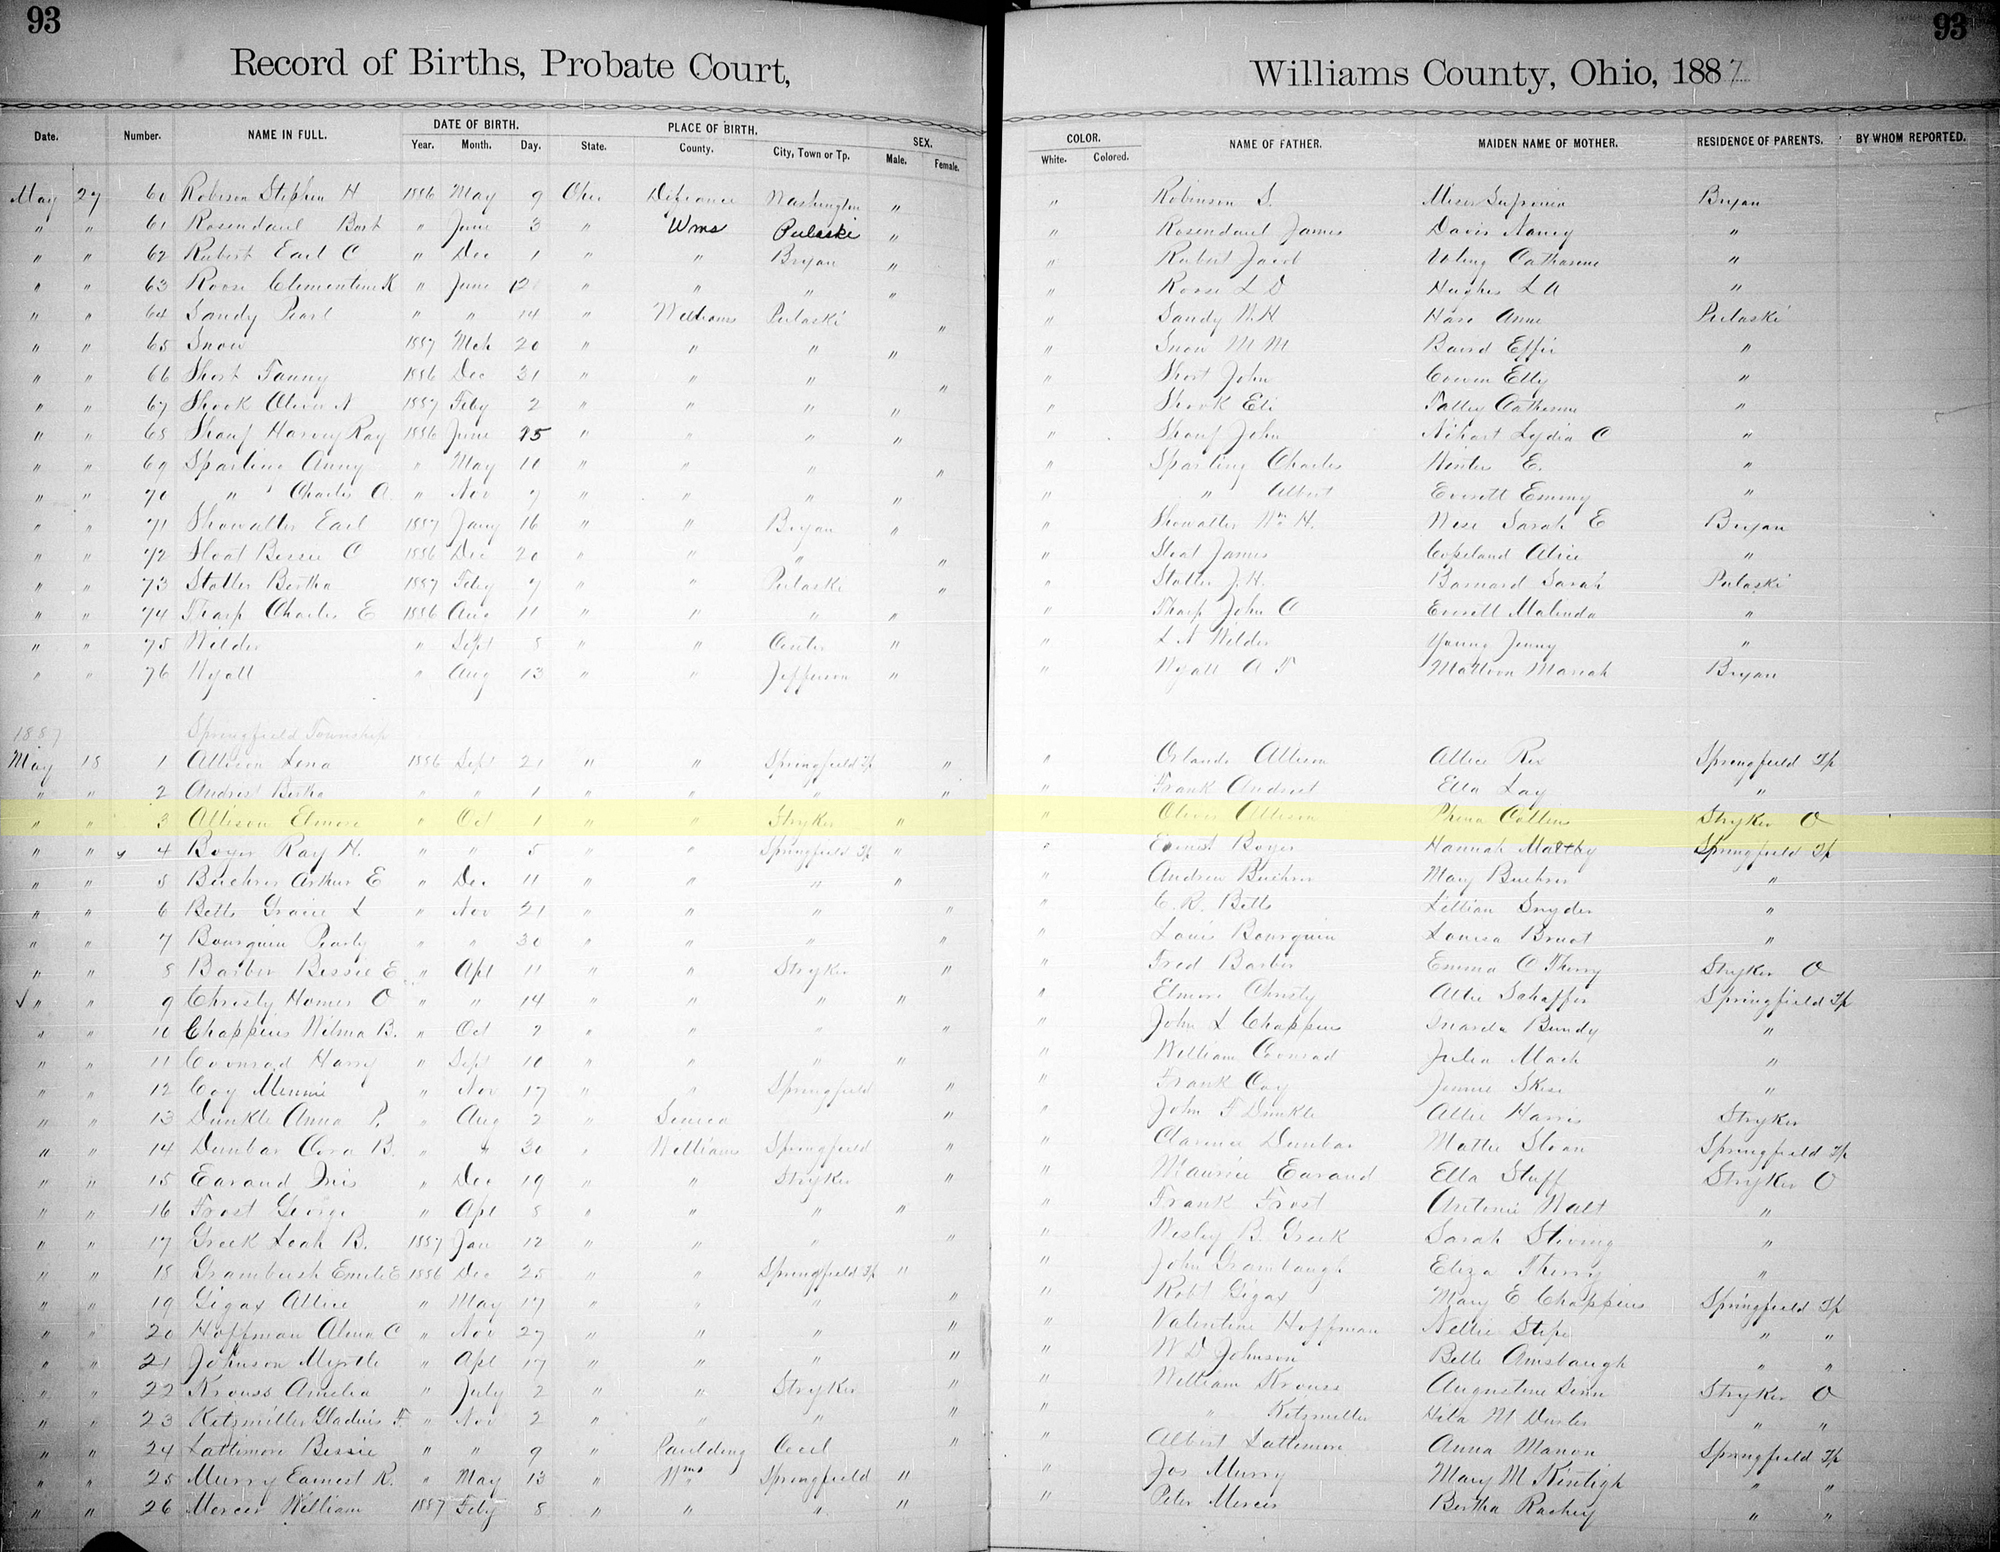 93
93
Record of Births, Probate Court,
Williams County, Ohio, 1887
Date. Number. NAME IN FULL. DATE OF BIRTH. PLACE OF BIRTH. SEX. COLOR. NAME OF FATHER. MAIDEN NAME OF MOTHER. RESIDENCE OF PARENTS. BY WHOM REPORTED.
Year. Month. Day. State. County. City, Town or Tp. Male. Female. White. Colored.
May 27 60 Robison Stephen H 1886 May 9 Ohio Defiance Washington " " Robinson S. Bryan
" " 61 Rosendaul Bert " June 3 " Wms Pulaski " " Rosendaul James Davis Nancy "
" " 62 Rubert Earl C " Dec 1 " " Bryan " " Rubert Jacob Catharine "
" " 63 Roose Clementine K " June 12 " " " " " Roose L D Hughes L A "
" " 64 Sandy Pearl " " 14 " Williams Pulaski " " Sandy W H Anne Pulaski
" " 65 Snow 1887 Mch 20 " " " " " Snow M M Baird Effie "
" " 66 Short Fanny 1886 Dec 31 " " " " " Short John Cowen Elly "
" " 67 Shook A 1887 Feby 2 " " " " " Shook Eli Talley Catherine "
" " 68 Shouf Harvey Ray 1886 June 25 " " " " " Shouf John Nihart Lydia C "
" " 69 Sparling Anny " May 10 " " " " " Sparling Charles E. "
" " 70 " Charles A. " Nov 7 " " " " " " Albert Everett Emmy "
" " 71 Showalter Earl 1887 Jany 16 " " Bryan " " Showalter Wm H. Wise Sarah E Bryan
" " 72 Sloat Bessie C 1886 Dec 20 " " " " " Sloat James Copeland Alice "
" " 73 Statler Bertha 1887 Feby 7 " " Pulaski " " Statler J. H. Barnard Sarah Pulaski
" " 74 Tharp Charles E 1886 Aug 11 " " " " " Tharp John C Everett Malinda "
" " 75 Wilder " Sept 8 " " Center " " L A Wilder Young Jenny "
" " 76 Wyatt " Aug 13 " " Jefferson " " Wyatt A T Mattoon Mariah Bryan
1887 Springfield Township
May 18 1 Allison Lena 1886 Sept 21 " " Springfield Tp " " Orlando Allison Allice Rex Springfield Tp
" " 2 Andrist Bertha " " 1 " " " " " Frank Andrist Ella Lay "
" " 3 Allison Elmore " Oct 1 " " Stryker " " Oliver Allison Phena Collins Stryker O
" " 4 Boyer Ray H. " " 5 " " Springfield Tp " " Ernest Boyer Hannah Maltby Springfield Tp
" " 5 Buehrer Arthur E " Dec 11 " " " " " Andrew Buehrer Mary Buehrer "
" " 6 Betts Graice L " Nov 21 " " " " " C. R. Betts Lillian Snyder "
" " 7 Bourquin Pearly " " 30 " " " " " Louis Bourquin Louisa Bruot "
" " 8 Barber Bessie E. " Apl 11 " " Stryker " " Fred Barber Emma C Thierry Stryker O
" " 9 Christy Homer O " " 14 " " " " " Elmore Christy Allie Schaffer Springfield Tp
" " 10 Chappius Wilma B. " Oct 2 " " " " " John L Chappius Bundy "
" " 11 Coonrad Harry " Sept 10 " " " " " William Coonrad Julia Mack "
" " 12 Coy Minnie " Nov 17 " " Springfield " " Frank Coy Jennie "
" " 13 Dunkle Anna P. " Aug 2 " Seneca " " John F Dunkle Allie Harris Stryker
" " 14 Dunbar Cora B. " " 30 " Williams Springfield " " Clarence Dunbar Mattie Sloan Springfield Tp
" " 15 Earaud Iris " Dec 19 " " Stryker " " Maurice Earaud Ella Stuff Stryker O
" " 16 Frost George " Apl 8 " " " " " Frank Frost Walt "
" " 17 Greek Leah B. 1887 Jan 12 " " " " " Wesley B. Greek Sarah Stiving "
" " 18 Grambush Emile E 1886 Dec 25 " " Springfield Tp " " John Grambaugh Eliza Thierry "
" " 19 Gigax Allice " May 17 " " " " " Robt Gigax Mary E Chappius Springfield Tp
" " 20 Hoffman Alma C " Nov 27 " " " " " Valentine Hoffman Nellie Stipe " "
" " 21 Johnson Myrtle " Apl 17 " " " " " W D Johnson Belle Amsbaugh " "
" " 22 Krouss Amelia " July 2 " " Stryker " " William Krouss Augustine Stryker O
" " 23 Kitzmiller Gladius F. " Nov 2 " " " " " " Kitzmiller M " "
" " 24 Lattimore Bessie " " 9 " Paulding Cecil " " Albert Lattimore Anna Manon Springfield Tp
" " 25 Murry Earnest R. " May 13 " Wms Springfield " " Jos Murry Mary M Kintigh " "
" " 26 Mercer William 1887 Feby 8 " " " " " Peter Mercer Bertha " "